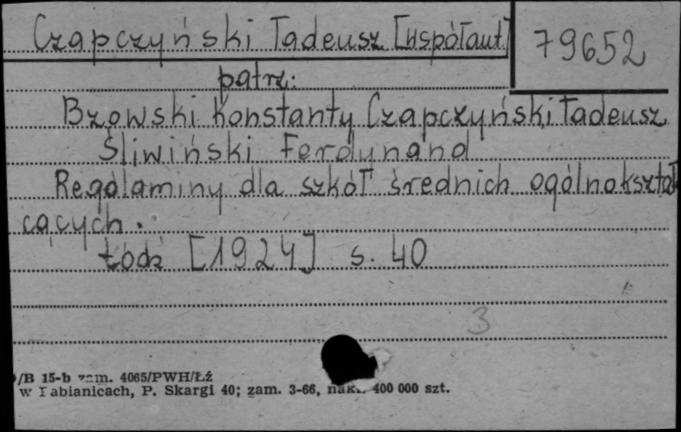 Czapczyński Tadeusz [Współaut]
79652
patrz:
Bzowski Konstanty Czapczyński Tadeusz
Śliwiński Ferdynand
Regulaminy dla szkół średnich ogólnokształ
cących.
Łódź [1924] s. 40
3
/B 15-b zam. 4065/PWH/Łź
w Pabianicach, P. Skargi 40; zam. 3-66, nakł. 400 000 szt.